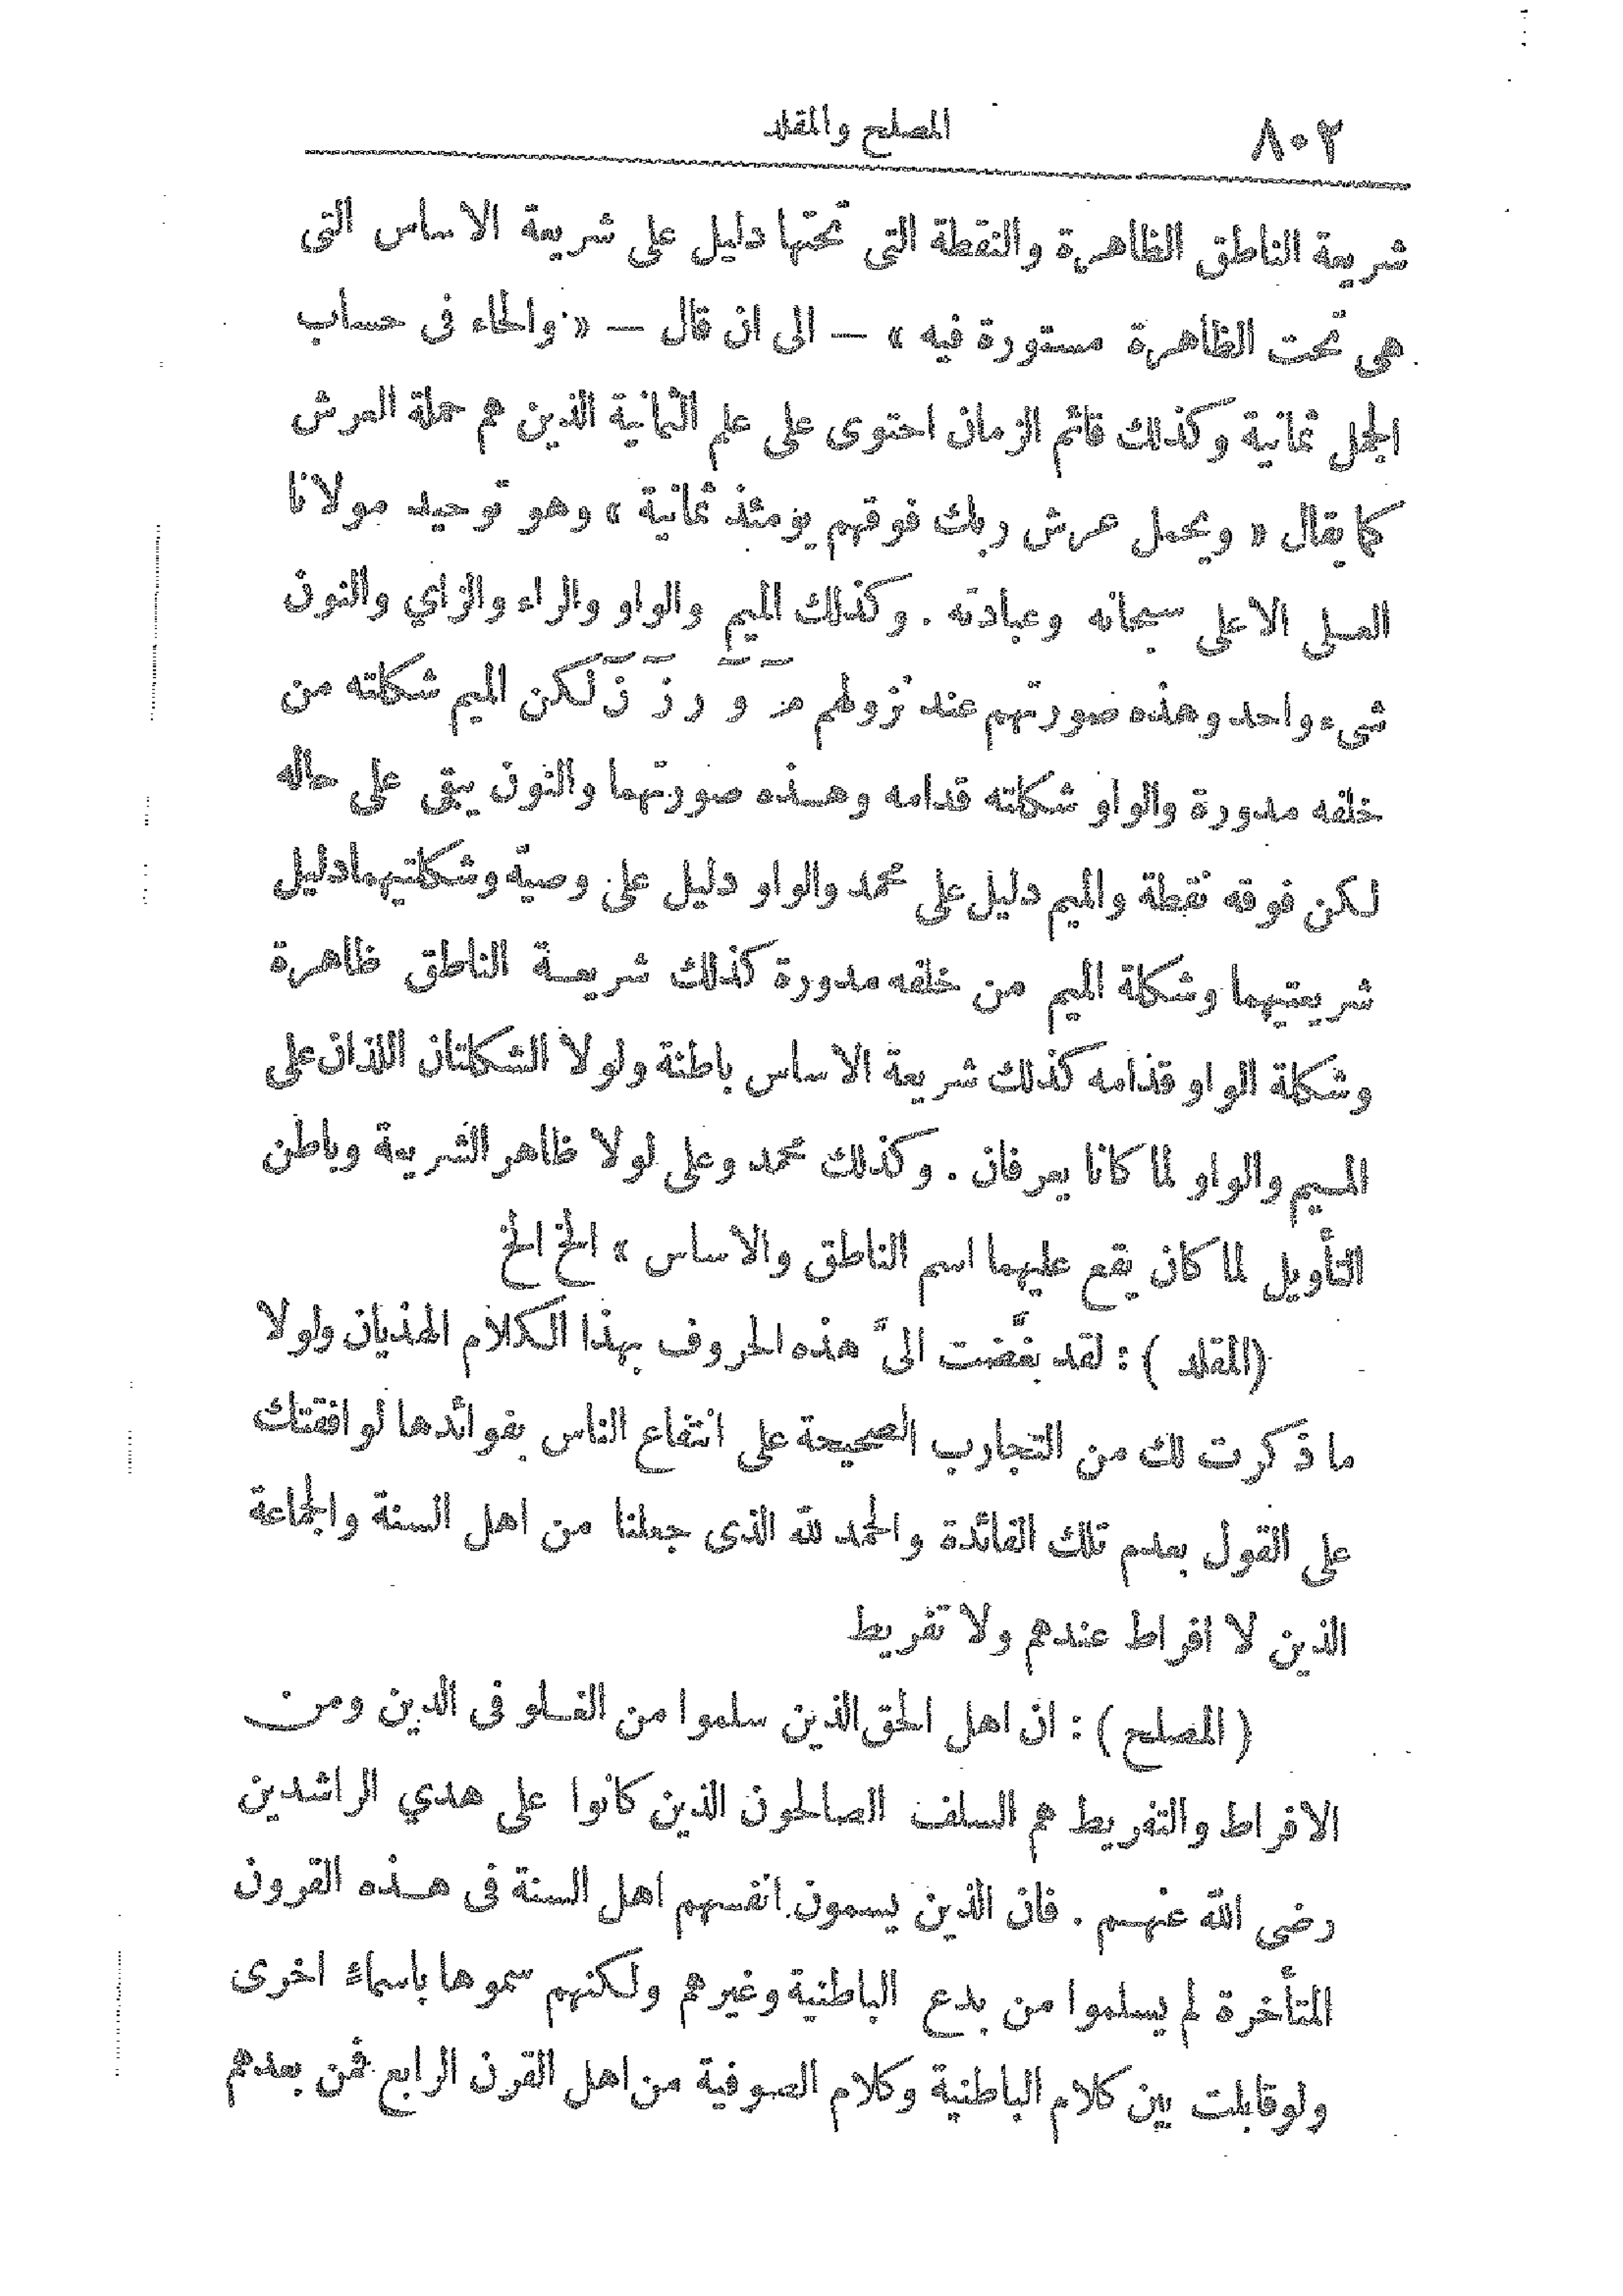 ٨٠٢ المصلح والمقلد
شريعة الناطق الظاهرة والنقطة التى تحتها دليل على شريعة الاساس التى
هى تحت الظاهرة مستورة فيه » — الى ان قال — « والحاء فى حساب
الجمل ثمانية وكذلك قائم الزمان احتوى على علم الثمانية الذين هم حملة العرش
كما يقال « ويحمل عرش ربك فوقهم يومئذ ثمانية » وهو توحيد مولانا
العلى الاعلى سبحانه وعبادته . وكذلك الميم والواو والراء والزاي والنون
شىء واحد وهذه صورتهم عند نزولهم مـ و ر ز ن لكن الميم شكلته من
خلفه مدورة والواو شكلته قدامه وهذه صورتهما والنون يبقى على حاله
لكن فوقه نقطة والميم دليل على محمد والواو دليل على وصية وشكلتيهما دليل
شريعتيهما وشكلة الميم من خلفه مدورة كذلك شريعة الناطق ظاهرة
وشكلة الواو قدامه كذلك شريعة الاساس باطنة ولولا الشكلتان اللذان على
الميم والواو لما كانا يعرفان . وكذلك محمد وعلى لولا ظاهر الشريعة وباطن
التأويل لما كان يقع عليهما اسم الناطق والاساس » الخ الخ
(المقلد) : لقد بغَّضت الىَّ هذه الحروف بهذا الكلام الهذيان ولولا
ما ذكرت لك من التجارب الصحيحة على انتفاع الناس بفوائدها لوافقتك
على القول بعدم تلك الفائدة والحمد لله الذى جعلنا من اهل السنة والجماعة
الذين لا افراط عندهم ولا تفريط
(المصلح) : ان اهل الحق الذين سلموا من الغلو فى الدين ومن
الافراط والتفريط هم السلف الصالحون الذين كانوا على هدي الراشدين
رضى الله عنهم . فان الذين يسمون انفسهم اهل السنة فى هذه القرون
المتأخرة لم يسلموا من بدع الباطنية وغيرهم ولكنهم سموها باسماء اخرى
ولو قابلت بين كلام الباطنية وكلام الصوفية من اهل القرن الرابع فمن بعدهم